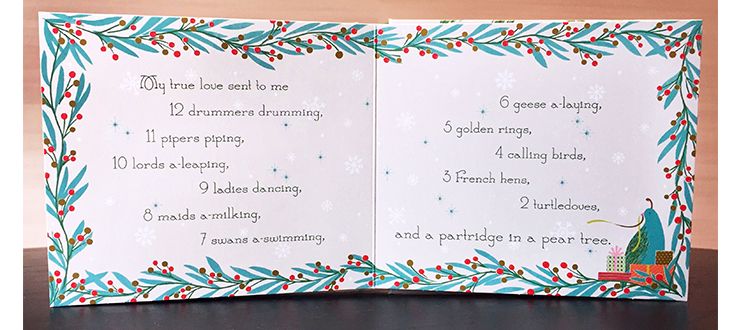 My true love sent to me
12 drummers drumming,
11 pipers piping,
10 lords a-leaping,
9 ladies dancing,
8 maids a-milking,
7 swans a-swimming,
6 geese a-laying,
5 golden rings,
4 calling birds,
3 French hens,
2 turtledoves,
and a partridge in a pear tree.